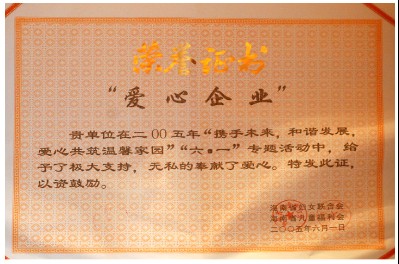 荣誉证书
“爱心企业”
贵单位在二00五年“携手未来，和谐发展，
爱心共筑温馨家园”“六·一”专题活动中，给
予了极大支持，无私的奉献了爱心。特发此证，
以资鼓励。
省妇女联合会
省儿童福利会
二〇〇五年六月一日